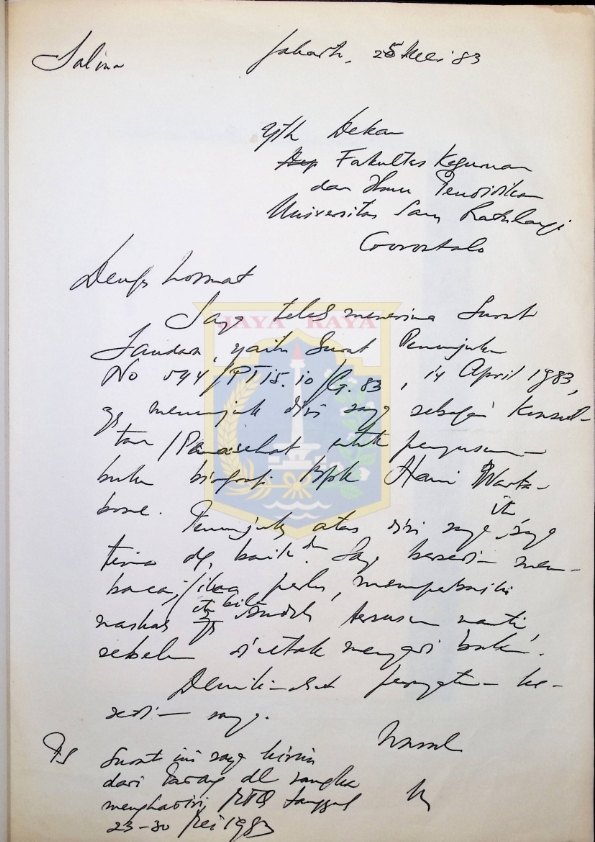 Salina
Jakarta, 25 Mei 83
Yth Dekan
Dep Fakultas Keguruan
dan Ilmu Pendidikan
Universitas Sam Ratulangi
Gorontalo
Dengan hormat
JAYA RAYA
Saya telah menerima Surat
Saudara, yaitu Surat Penunjukan
No 544/PT15.10/G.83, 14 April 1983,
yg menunjuk diri saya sebagai Konsul-
tan/Penasehat untuk penyusunan
buku biografi Bpk Hani Warta-
bone. Penunjukan atas diri saya itu, saya
terima dg baik dan Saya bersedia mem-
baca, jika perlu, memperbaiki
naskah itu bila sudah tersusun nanti,
sebelum dicetak menjadi buku.
Demikianlah pernyataan ke-
sediaan saya.
Wassal
PS Surat ini saya kirim
dari Padang dl rangka
menghadiri MTQ tanggal
23-30 Mei 1983